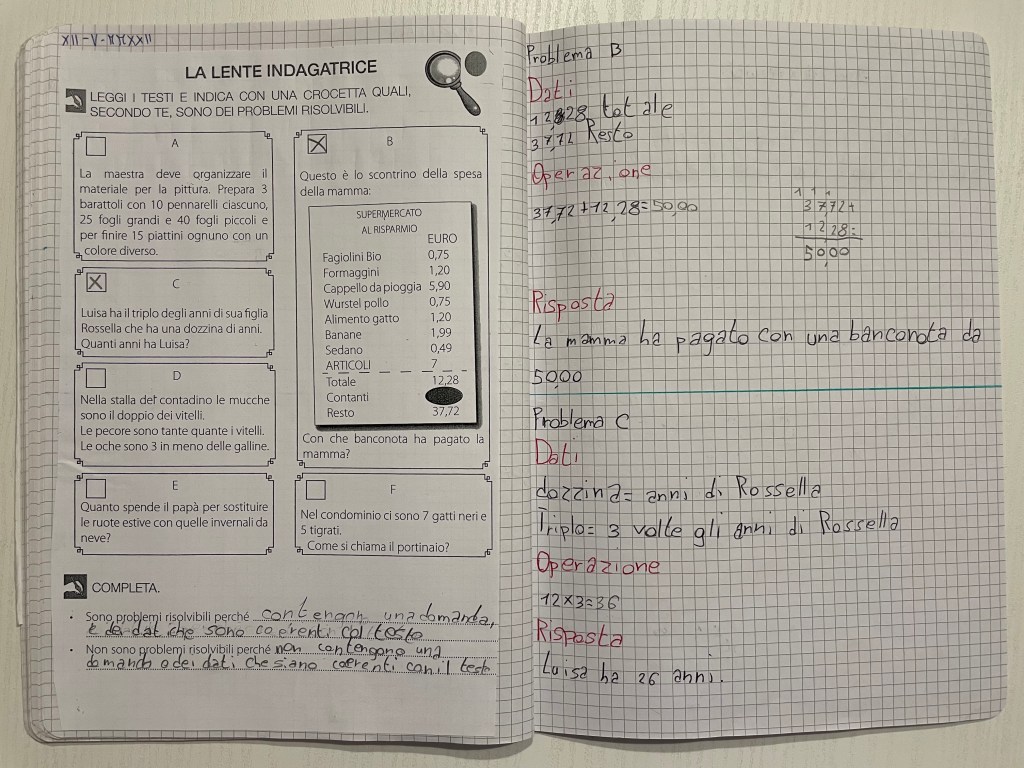 XII-V-XXXXII
LA LENTE INDAGATRICE
LEGGI I TESTI E INDICA CON UNA CROCETTA QUALI,
SECONDO TE, SONO DEI PROBLEMI RISOLVIBILI.
A
La maestra deve organizzare il
materiale per la pittura. Prepara 3
barattoli con 10 pennarelli ciascuno,
25 fogli grandi e 40 fogli piccoli e
per finire 15 piattini ognuno con un
colore diverso.
C
Luisa ha il triplo degli anni di sua figlia
Rossella che ha una dozzina di anni.
Quanti anni ha Luisa?
D
Nella stalla del contadino le mucche
sono il doppio dei vitelli.
Le pecore sono tante quante i vitelli.
Le oche sono 3 in meno delle galline.
E
Quanto spende il papà per sostituire
le ruote estive con quelle invernali da
neve?
B
Questo è lo scontrino della spesa
della mamma:
SUPERMERCATO
AL RISPARMIO
EURO
Fagiolini Bio 0,75
Formaggini 1,20
Cappello da pioggia 5,90
Wurstel pollo 0,75
Alimento gatto 1,20
Banane 1,99
Sedano 0,49
ARTICOLI 7
Totale 12,28
Contanti
Resto 37,72
Con che banconota ha pagato la
mamma?
F
Nel condominio ci sono 7 gatti neri e
5 tigrati.
Come si chiama il portinaio?
COMPLETA.
• Sono problemi risolvibili perché contengono una domanda,
e dei dati che sono coerenti col testo
• Non sono problemi risolvibili perché non contengono una
domanda o dei dati che siano coerenti con il testo
Problema B
Dati
12,28 totale
37,72 Resto
Operazione
37,72+12,28=50,00
1 1 1
37,72+
12,28=
50,00
Risposta
La mamma ha pagato con una banconota da
50,00
Problema C
Dati
dozzina= anni di Rossella
Triplo= 3 volte gli anni di Rossella
Operazione
12×3=36
Risposta
Luisa ha 26 anni.